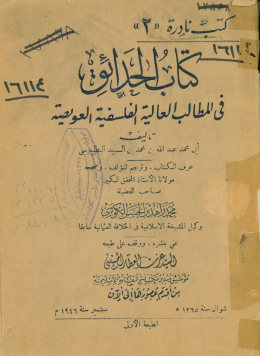 كتب نادرة «٢»
١٦١١٤
١٦١١٤
كتاب الحدائق
في المطالب العالية الفلسفية العويصة
تأليف
أبي محمد عبد الله بن محمد بن السيد البطليوسي
عرف الكتاب، وترجم للمؤلف، وصححه
مولانا الأستاذ المحقق الكبير
صاحب الفضيلة
محمد زاهد بن الحسن الكوثري
وكيل المشيخة الإسلامية في الخلافة العثمانية سابقا
عني بنشره، ووقف على طبعه
السيد عزت العطار الحسيني
من أقدم عصورها إلى الآن
شوال سنة ١٣٦٥ هـ
سبتمبر سنة ١٩٤٦ م
الطبعة الأولى